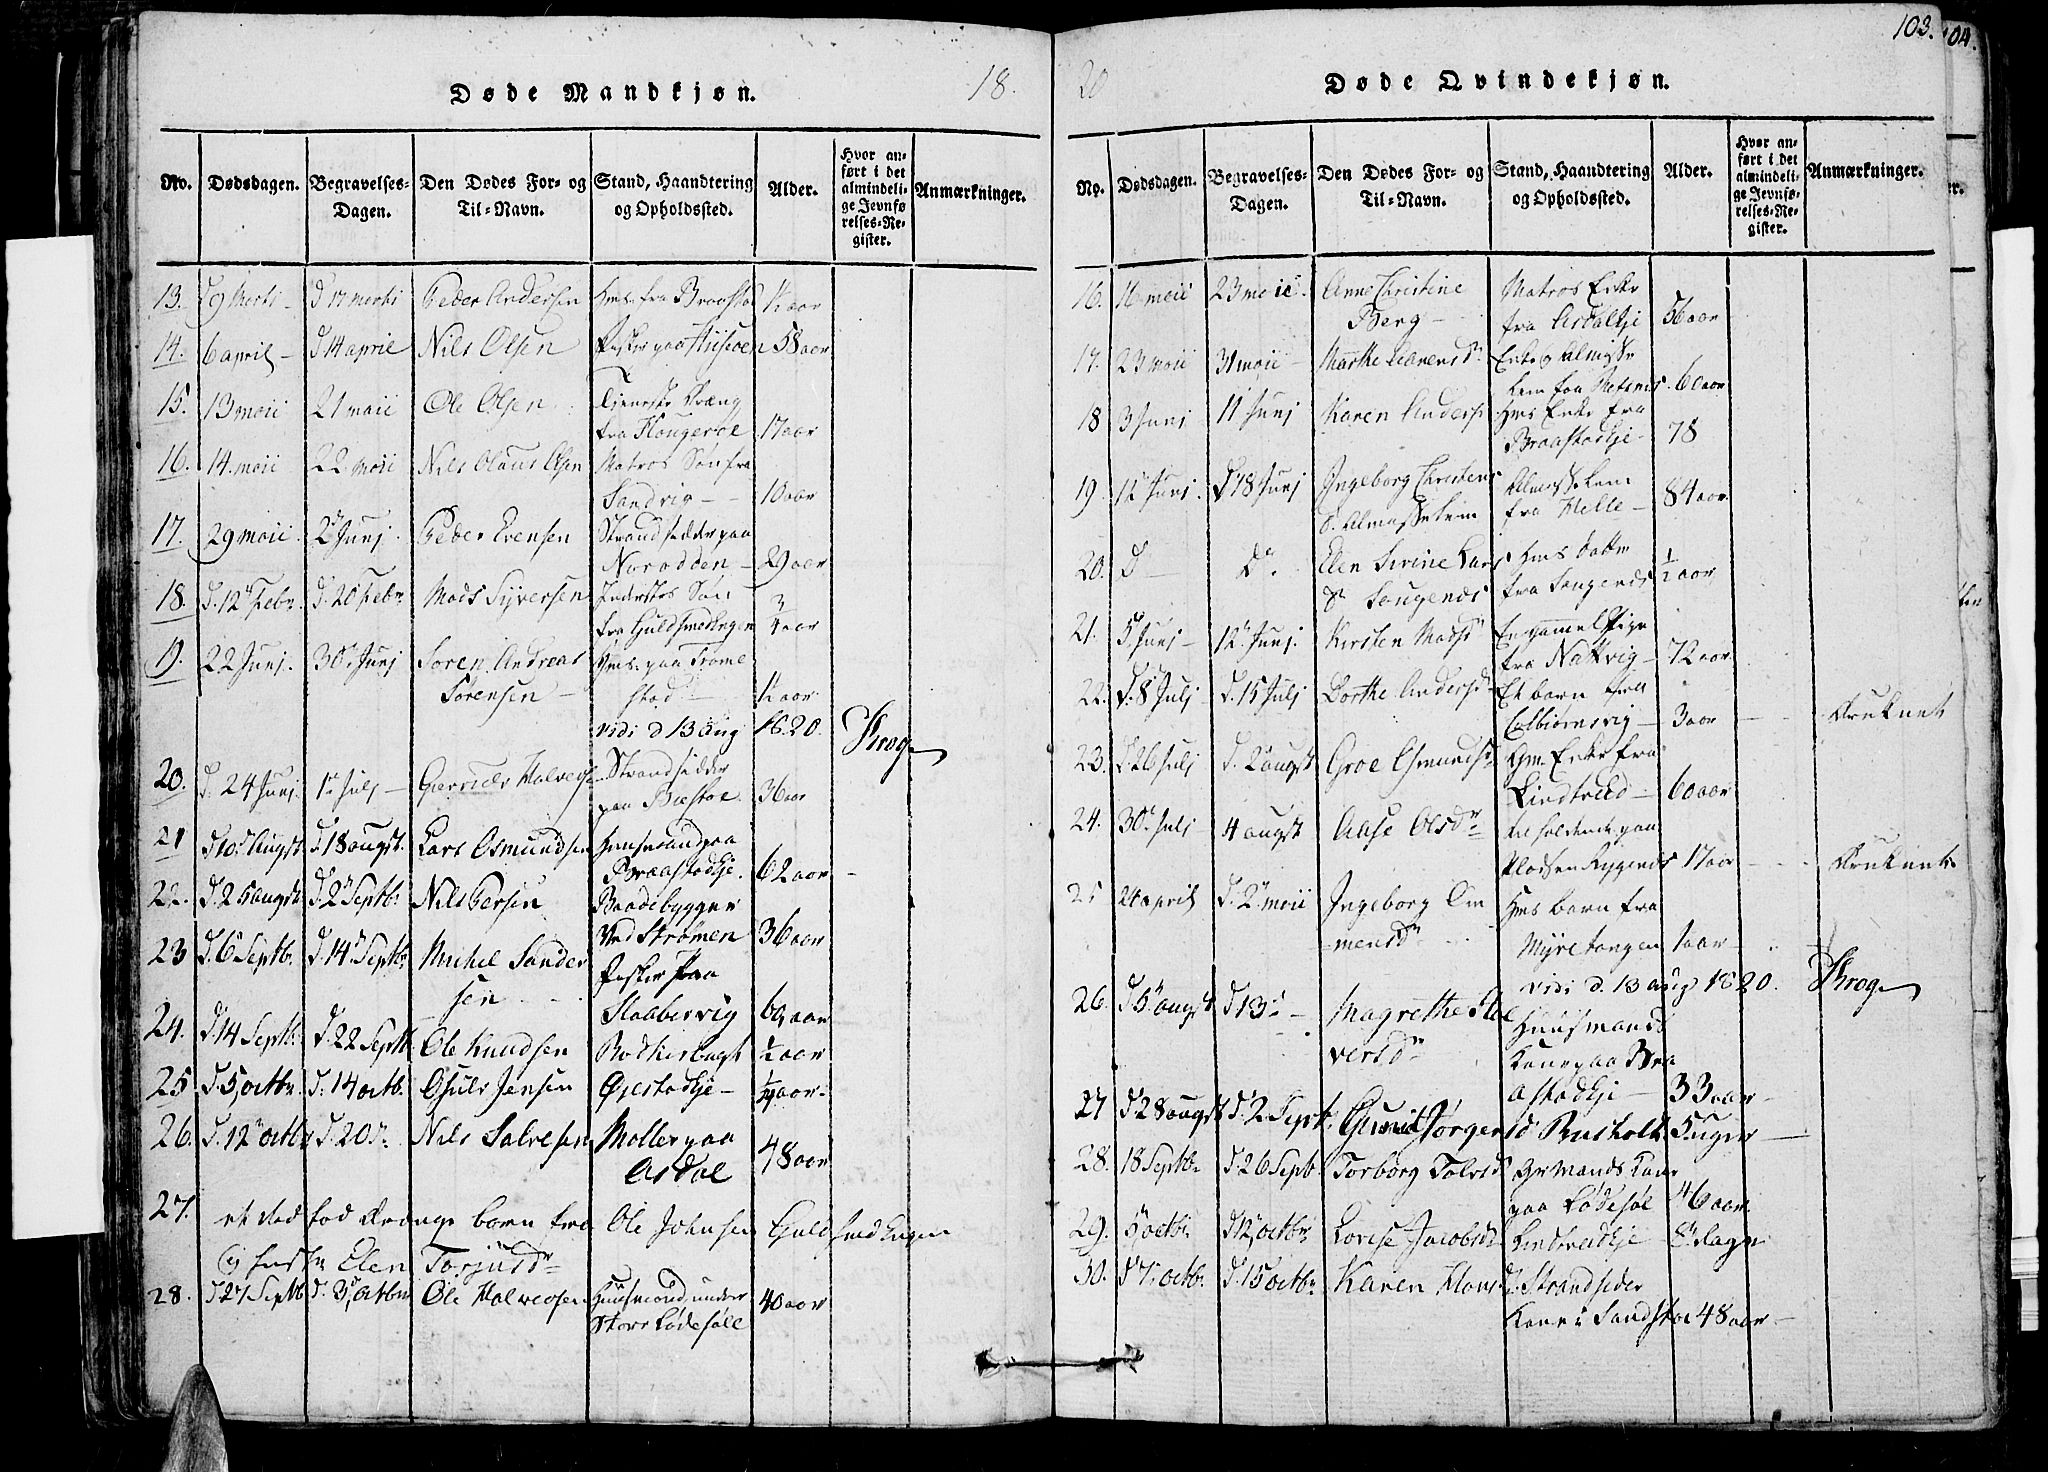 18.
Døde Mandkjøn.
No. Dødsdagen. Begravelses-Dagen. Den Dødes For- og Til-Navn. Stand, Haandtering og Opholdssted. Alder. Hvor anført i det almindelige Jevnførelses-Register. Anmærkninger.
13. 9 Marti 17 marti Peder Andersen fra Braastad
14. 6 april d 14 april Nils Olsen paa 58 aar
15. 13 maii 21 maii Ole Olsen Tieneste Dræng
fra Flougeroe 17 aar
16. 14. maii 22 maii Nils Olaus Olsen Matros Søn fra
Sandvig 10 aar
17. 29 maii 2 Junj Peder Evensen Strandsidder paa
Narodden 29 aar
18. d. 12 Febr d. 20 Febr Mads Syversen Søn
fra Guldsmedengen 3/4 aar
19. 22 Junj. 30 Junj Søren Andreas paa Tromø
Sørensen stad 1/2 aar
vidi d 13 aug 1820. Krog
20. d. 24 Junj 1 Julj Halvors Strandsidder
paa Biestøe. 36 aar
21 d 10 Augst d. 18 augst. Lars Osmundsen Huusmand paa
Braastadkje. 62 aar
22. d. 25 augst d. 2 Septbr Nils Persen Baadebygger
Ved Strømen 36 aar
23 d. 6 Septbr. d. 14 Septbr Michel Sander
sen paa
Stabbervig 60 aar
24. d. 14 Septbr d. 22 Septb. Ole Knudsen Bødkerbugt 1/2 aar
25 d 5 octbr d. 14 octb. Jensen Øyestadkje 1/4 aar
26. d. 12 octbr d. 20 d. Nils Salvesen Møller paa
Asdal 48 aar
27. et død fød drænge barn fra Ole Johnsen Guldsmedengen
Elen Torjusdr
28. d 27 Septb d. 3 octbr Ole Halvorsen Huusmand under
Store Lødesøll 40 aar
20
Døde Qvindekjøn.
103.
No. Dødsdagen. Begravelses-Dagen. Den Dødes For- og Til-Navn. Stand, Haandtering og Opholdssted. Alder. Hvor anført i det almindelige Jevnførelses-Register. Anmærkninger.
16. 16 maii 23 maii. Anne Christine Matros Enke
Berg fra Asdalkje 56 aar
17. 23 maii 31 maii Marthe Enke og Almisse
Lem fra 60 aar
18 3 Junj 11 Junj Karen Anders Hms Enke fra
Braastadkje 78
19. 12 Junj. d 18 Junj Ingeborg Christens Almisselem
D. Almisselem fra Helle 84 aar
20. D D. Elen Sirine Lars Hms datter
D Songenes fra Songenes 1/2 aar
21. 5 Junj 12 Junj. Kirsten Madsd En gammel Pige
fra Nattvig 72 aar
22. d. 8 Julj d. 15 Julj Dorthe Andersd Et barn fra
Colbiornsvig 3 aar druknet
23. d 26 Julj d. 2 augst Groe Osmundsd Gm. Enke fra
Lindtveed 60 aar
24. 30 Julj 4 augst Aase Olsdr paa
17 aar druknet
25 24 april d. 2 maii Ingeborg Om Hms barn fra
mensd Myretangen 1 aar
vidi d. 13 aug 1820. Krog
26. d 5 augst d 13 Magrethe Hal Huusmands
versdr Kone paa Bra
astadkje 33 aar
27 d 28 augst d. 2 Septbr. Gunild Jørgensd Rusholt 5 uger
28. 18 Septbr d 26 Septb. Torborg Tolvsd Grmands Kone
paa Lødesøl 46 aar
29. 5 octbr d 12 octbr Lovise Jacobsd Lindtvedkje 8 dage
30. d 7 octbr. d. 15 octbr Karen Mons d. Strandsidder
Kone i Sandstøe 48 aar